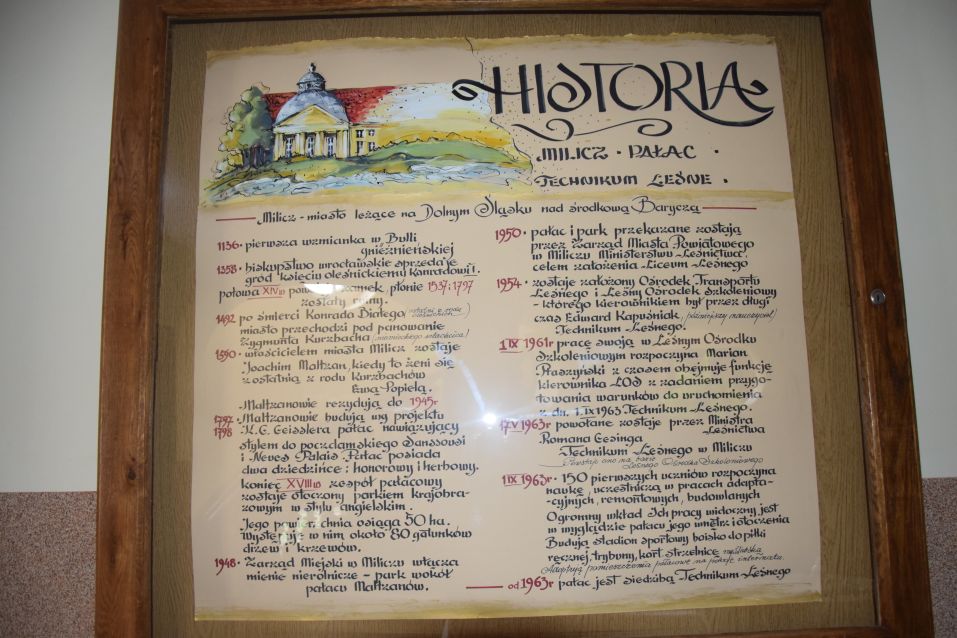 HISTORIA
MILICZ · PAŁAC ·
TECHNIKUM LEŚNE ·
Milicz - miasto leżące na Dolnym Śląsku nad środkową Baryczą
1136 · pierwsza wzmianka w Bulli
gnieźnieńskiej
1358 · biskupstwo wrocławskie sprzedaje
gród księciu oleśnickiemu Konradowi I.
połowa XIV w zamek, płonie 1537 i 1797
zostały ruiny.
1492 po śmierci Konrada Białego (ostatni z rodu
miasto przechodzi pod panowanie
Zygmunta Kurzbacha (niemieckiego właściciela)
1590 · właścicielem miasta Milicz zostaje
Joachim Maltzan, kiedy to żeni się
z ostatnią z rodu Kurzbachów
Ewą Popielą.
Maltzanowie rezydują do 1945r
1797 · Maltzanowie budują wg projektu
1798 K. G. Geisslera pałac nawiązujący
stylem do poczdamskiego Sanssousi
i Neues Palais. Pałac posiada
dwa dziedzińce: honorowy i herbowy.
koniec XVIII w zespół pałacowy
zostaje otoczony parkiem krajobra-
zowym w stylu angielskim.
Jego powierzchnia osiąga 50 ha.
Występuje w nim około 80 gatunków
drzew i krzewów.
1948 · Zarząd Miejski w Miliczu włącza
mienie nierolnicze - park wokół
pałacu Maltzanów.
1950 · pałac i park przekazane zostają
przez Zarząd Miasta Powiatowego
w Miliczu Ministerstwu Leśnictwa.
celem założenia Liceum Leśnego
1954 · zostaje założony Ośrodek Transportu
Leśnego i Leśny Ośrodek Szkoleniowy
którego kierownikiem był przez długi
czas Edward Kapuśniak, (późniejszy nauczyciel)
Technikum Leśnego.
1 IX 1961r pracę swoją w Leśnym Ośrodku
Szkoleniowym rozpoczyna Marian
Ptaszyński z czasem obejmuje funkcję
kierownika LOS z zadaniem przygo-
towania warunków do uruchomienia
z dn. 1.IX 1963 Technikum Leśnego.
17 V 1963r powołane zostaje przez Ministra
Leśnictwa
Romana Gesinga
Technikum Leśnego w Miliczu
Powstaje ono na bazie
Leśnego Ośrodka Szkoleniowego
1 IX 1963r · 150 pierwszych uczniów rozpoczyna
naukę, uczestnicząc w pracach adapta-
cyjnych, remontowych, budowlanych
Ogromny wkład Ich pracy widoczny jest
w wyglądzie pałacu jego wnętrz i otoczenia
Budują stadion sportowy boisko do piłki
ręcznej, trybuny, kort, strzelnicę myśliwską
Adaptują pomieszczenia pałacowe na pokoje internatu.
od 1963r pałac jest siedzibą Technikum Leśnego